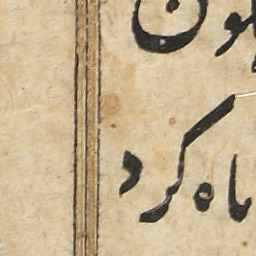 لون
ماه کرد